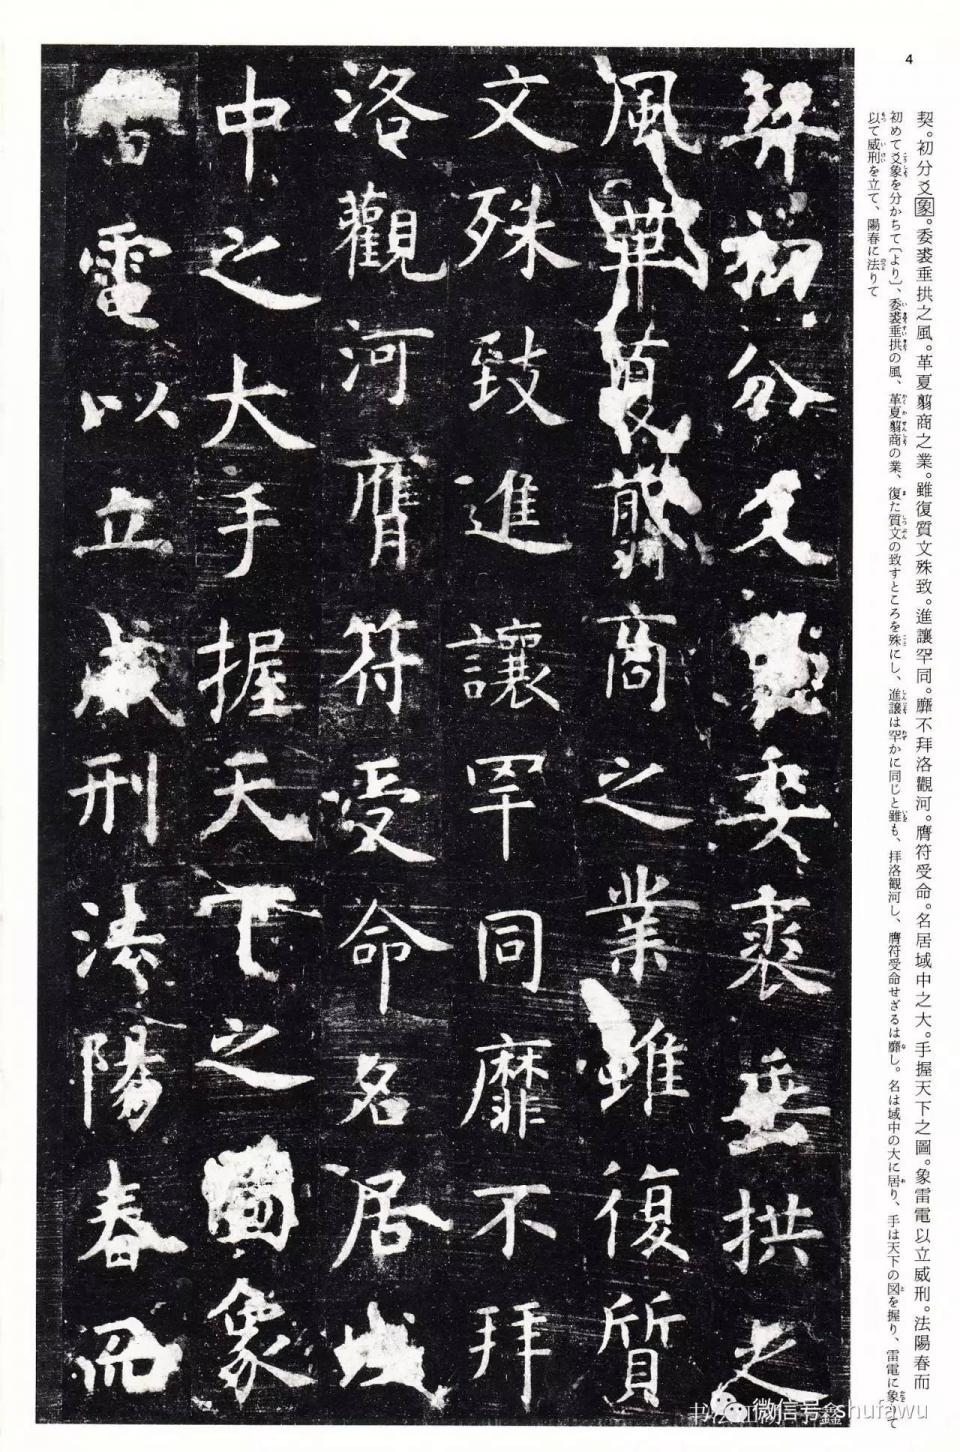 4
契。初分爻象。委裘垂拱之風。革夏翦商之業。雖復質文殊致。進讓罕同。靡不拜洛觀河。膺符受命。名居域中之大。手握天下之圖。象雷電以立威刑。法陽春而
初めて爻象を分かちて〔より〕、委裘垂拱の風、革夏翦商の業、復た質文の致すところを殊にし、進讓は罕かに同じと雖も、拝洛観河し、膺符受命せざるは靡し。名は域中の大に居り、手は天下の図を握り、雷電に象りて
以て威刑を立て、陽春に法りて
契初分爻象委裘垂拱之
風革夏翦商之業雖復質
文殊致進讓罕同靡不拜
洛觀河膺符受命名居域
中之大手握天下之圖象
雷電以立威刑法陽春而
微信号: shufawu